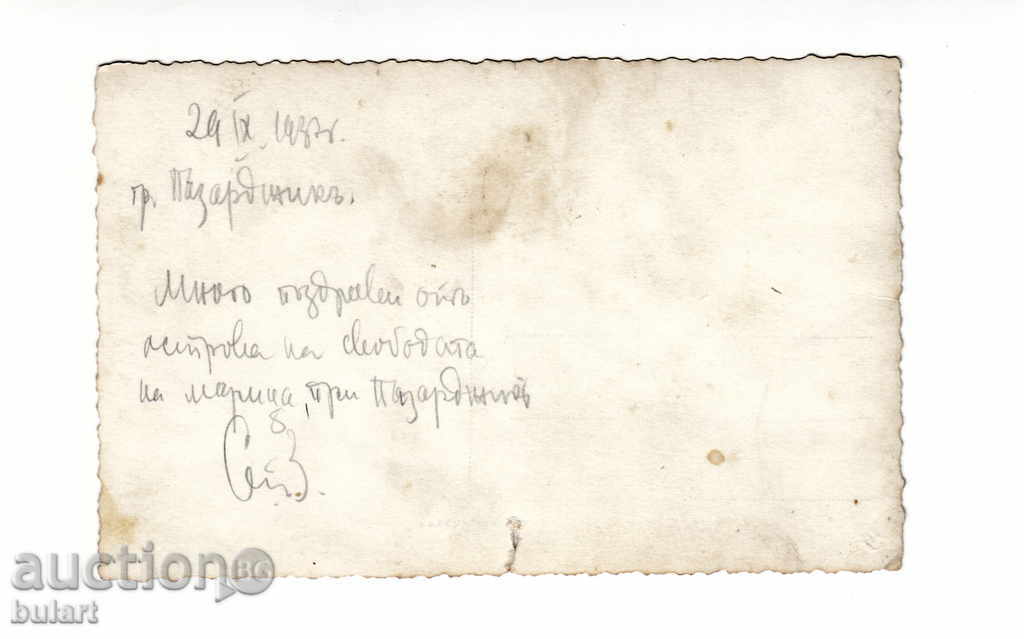 29 IX. 1937 г.
гр. Пазарджикъ.
Много поздрави отъ
острова на свободата
на марица, при Пазарджикъ
auctionBG
bulart